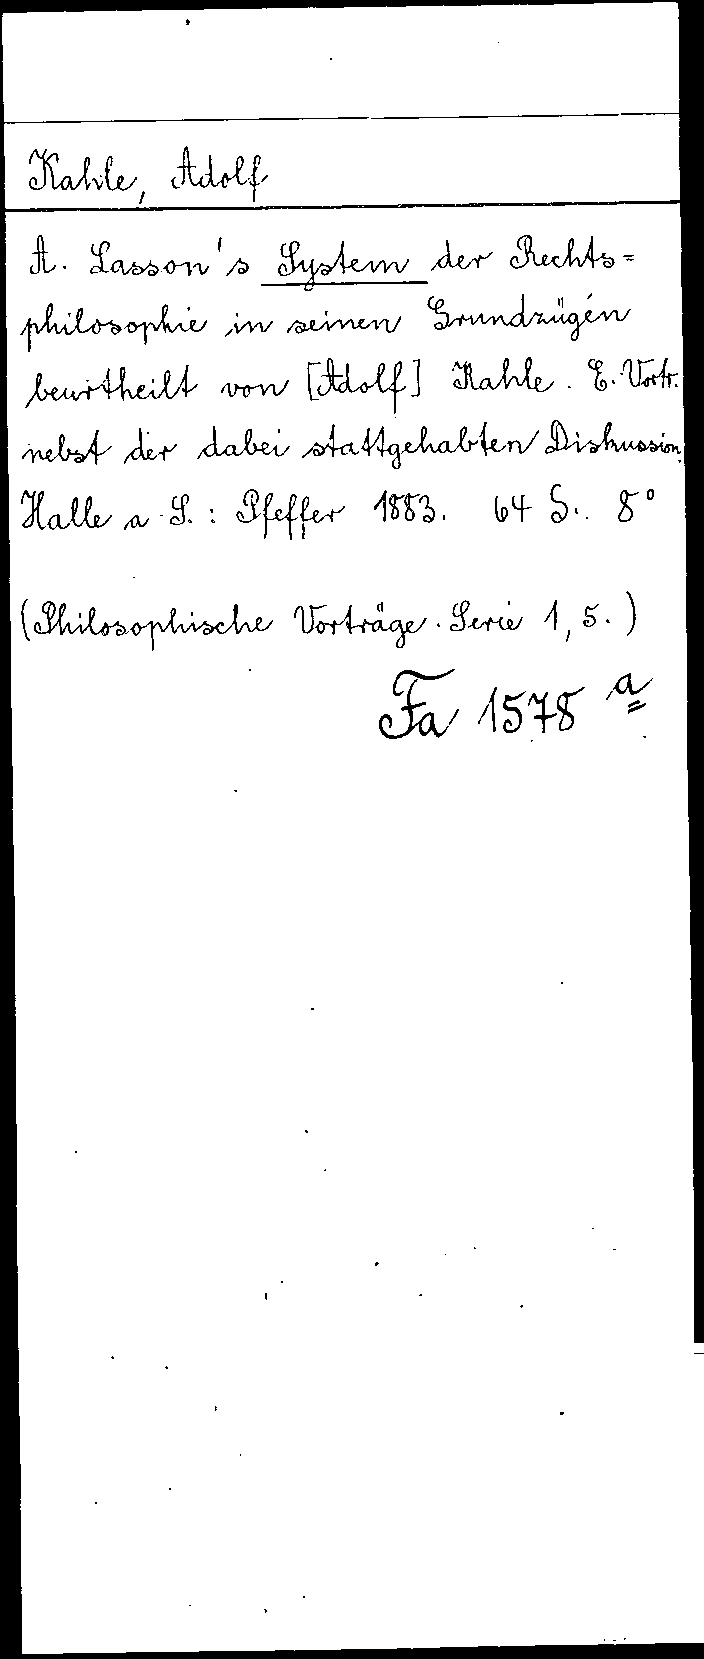 Kahle, Adolf
A. Lasson's System der Rechts=
philosophie in seinen Grundzügen
beurtheilt von [Adolf] Kahle. E. Vortr.
nebst der dabei stattgehabten Diskussion.
Halle a. S.: Pfeffer 1883. 64 S. 8°
(Philosophische Vorträge. Serie 1,5.)
Fa 1578 a